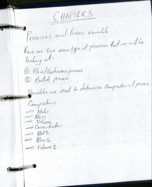 CHAPTER 3
Processes and Process Variable
There are two main type of processes that we will be
looking at:
① Mixed/Continuous process
② Batch process
Variables we need to determine Composition of process
Compositions
→ Moles
→ Mass
→ Volume
→ Concentration
→ Mol %
→ Mass %
→ Volume %